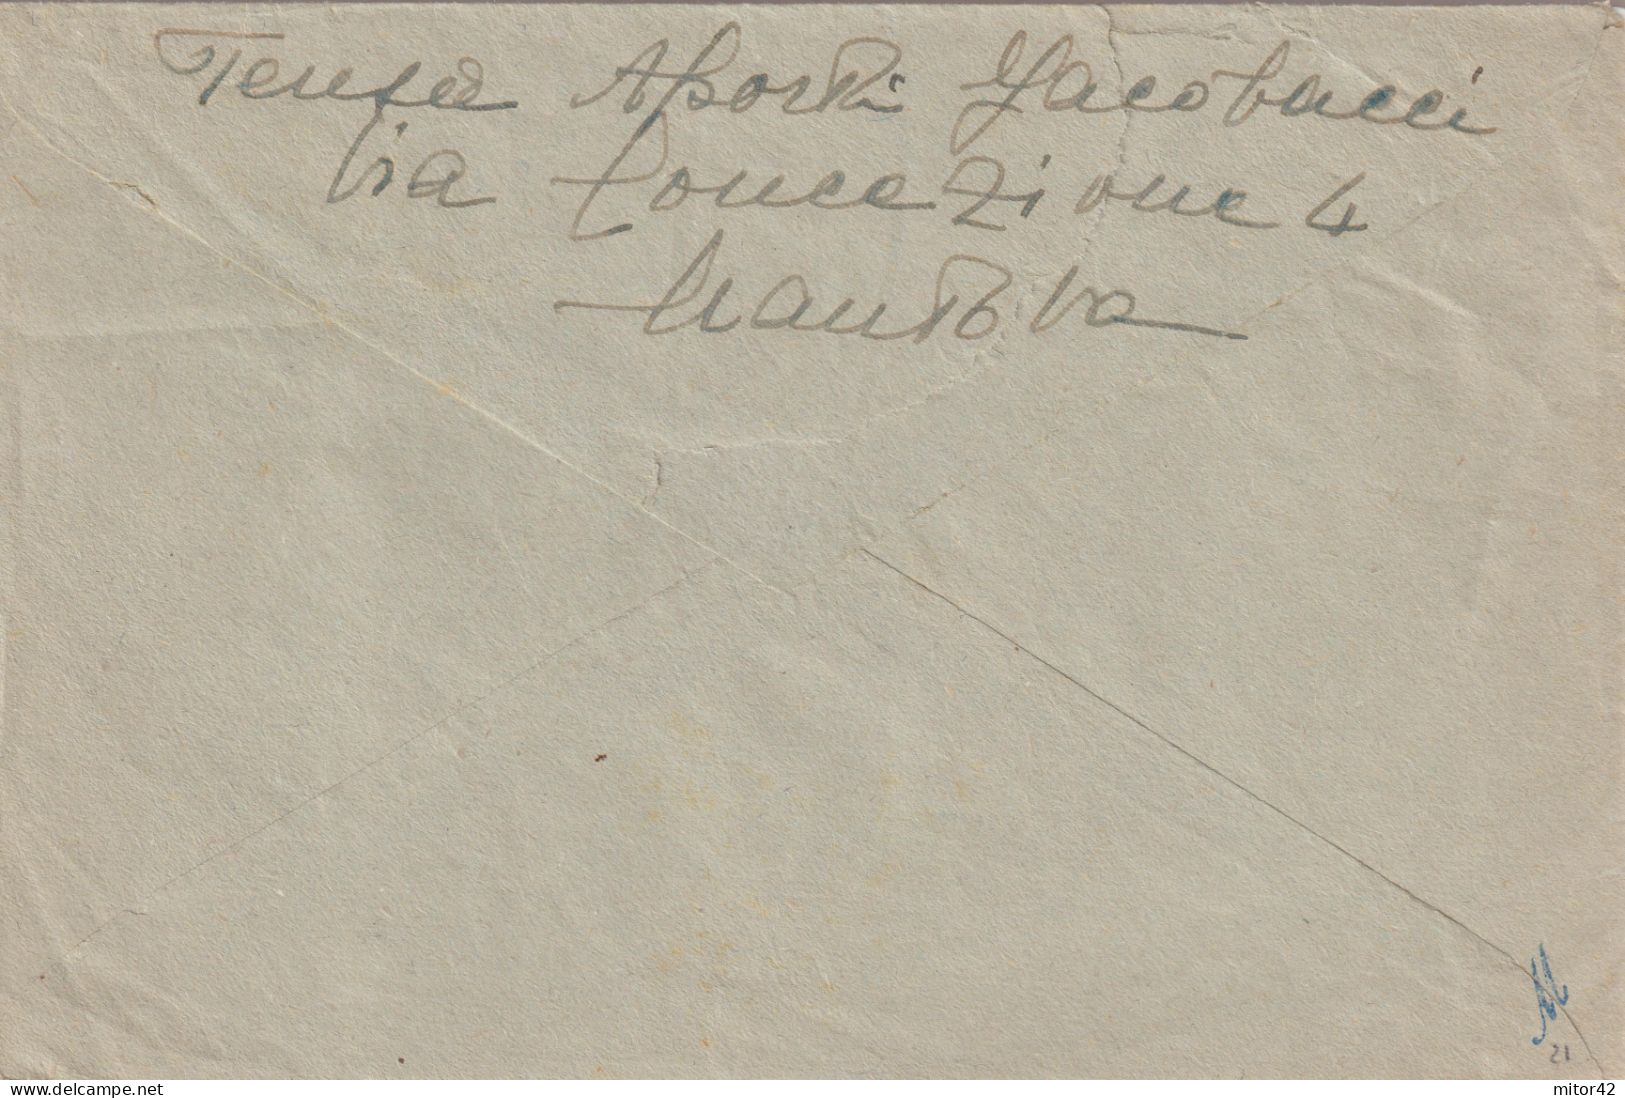 Teresa Aporti Jacobacci
Via Concezione 4
Mantova
M
21
delcampe.net
mitor42